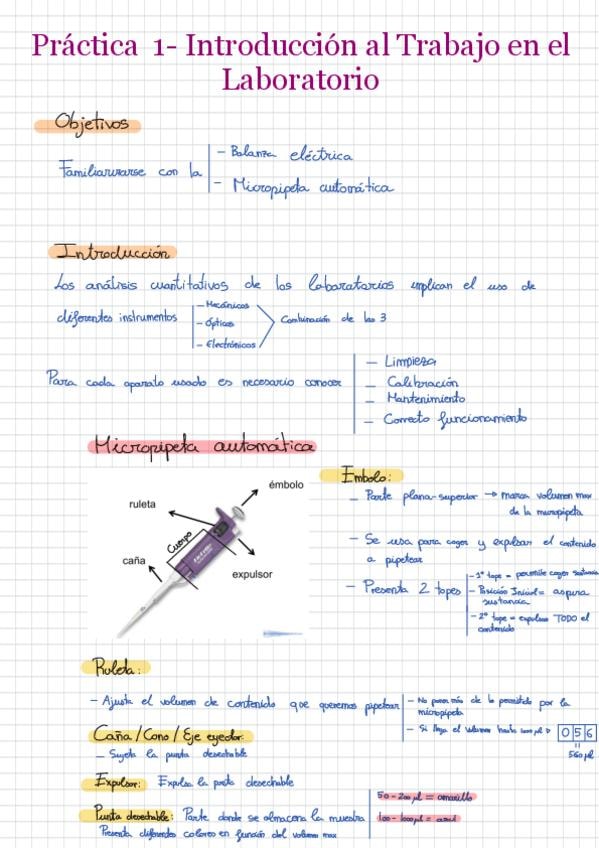 Práctica 1- Introducción al Trabajo en el
Laboratorio
Objetivos
Familiarizarse con la
- Balanza eléctrica
- Micropipeta automática
Introducción
Los análisis cuantitativos de los laboratorios implican el uso de
diferentes instrumentos
- Mecánicos
- Ópticos
- Electrónicos
Combinación de los 3
Para cada aparato usado es necesario conocer
- Limpieza
- Calibración
- Mantenimiento
- Correcto funcionamiento
Micropipeta automática
émbolo
ruleta
Cuerpo
caña
expulsor
Embolo:
- Parte plana-superior → marca volumen max
de la micropipeta
- Se usa para coger y expulsar el contenido
a pipetear
- Presenta 2 topes
- 1º tope = permite coger sustancia
- Posición Inicial = aspira
sustancia
- 2º tope = expulsa TODO el
contenido
Ruleta:
- Ajusta el volumen de contenido que queremos pipetear
- No poner más de lo permitido por la
micropipeta
- Si llega el volumen hasta 1000 µl →
0 5 6
560 µl
Caña / Cono / Eje eyector:
- Sujeta la punta desechable
Expulsor: Expulsa la punta desechable
Punta desechable: Parte donde se almacena la muestra
Presenta diferentes colores en función del volumen max
50 - 200 µl = amarillo
100 - 1000 µl = azul